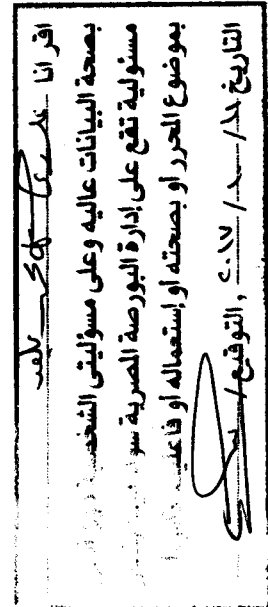 اقر انا
بصحة البيانات عاليه وعلى مسؤليتى الشخصـ
مسئولية تقع على إدارة البورصة المصرية سو
بموضوع المحرر او بصحته او إستعماله او فاعليـ
التاريخ / / ٢٠١٧ ، التوقيع /